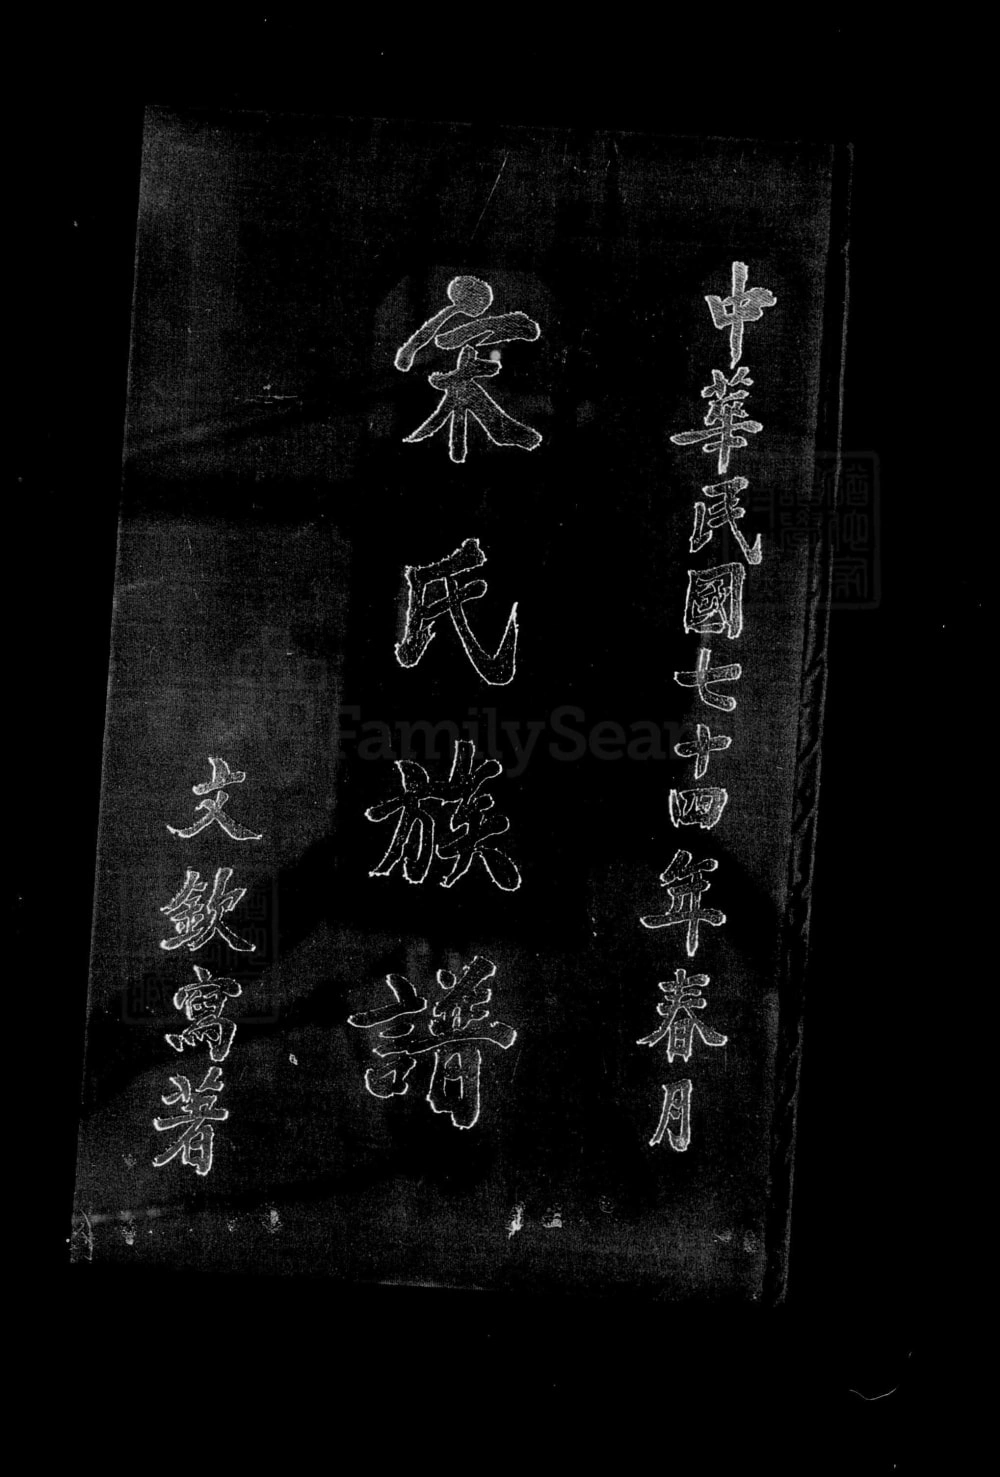 中華民國七十四年春月
宋氏族譜
文欽寫著
FamilySear